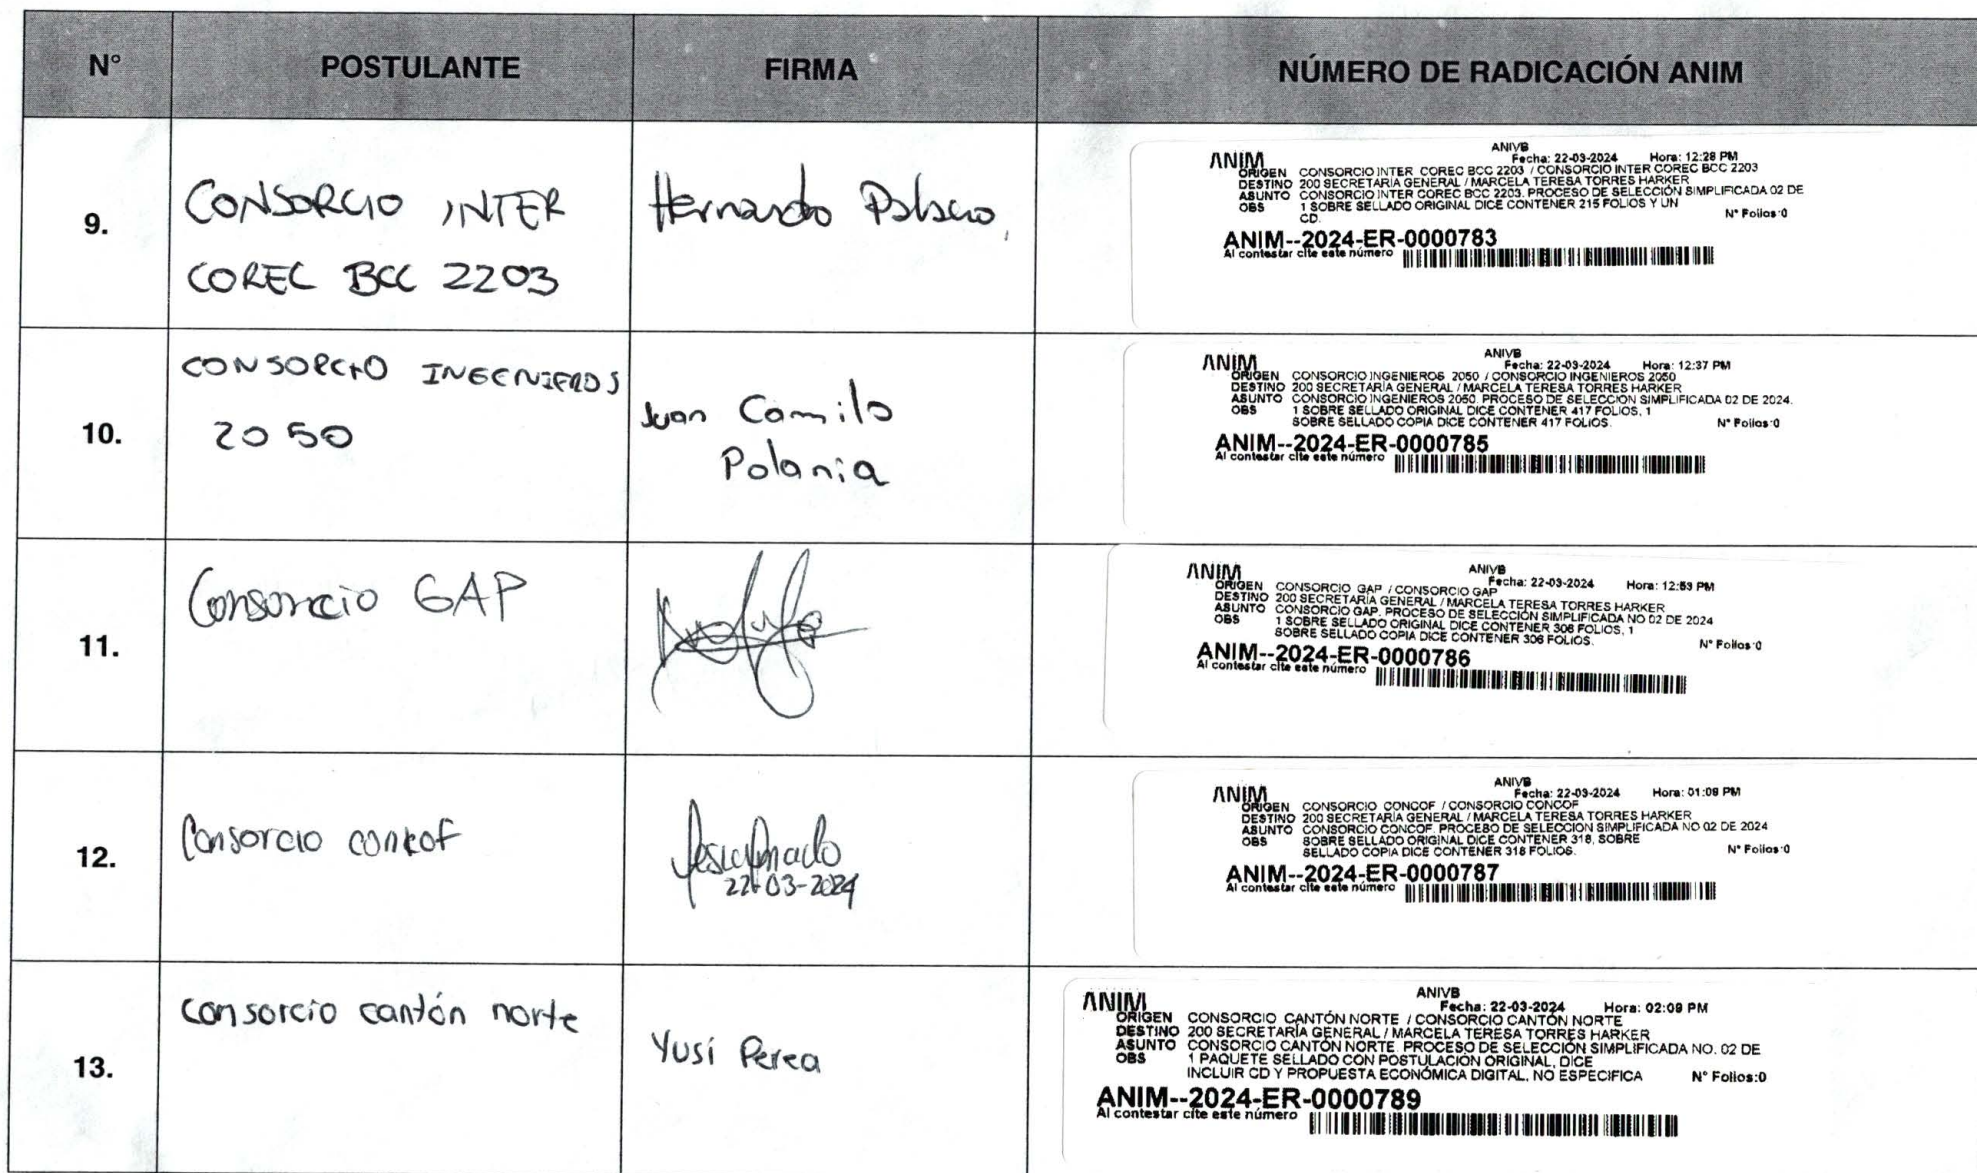 N° POSTULANTE FIRMA NÚMERO DE RADICACIÓN ANIM
9.
CONSORCIO INTER
COREC BCC 2203
Hernando
ANIVB
ANIM Fecha: 22-03-2024 Hora: 12:28 PM
ORIGEN CONSORCIO INTER COREC BCC 2203 / CONSORCIO INTER COREC BCC 2203
DESTINO 200 SECRETARÍA GENERAL / MARCELA TERESA TORRES HARKER
ASUNTO CONSORCIO INTER COREC BCC 2203. PROCESO DE SELECCIÓN SIMPLIFICADA 02 DE
OBS 1 SOBRE SELLADO ORIGINAL DICE CONTENER 215 FOLIOS Y UN
CD. N° Folios:0
ANIM--2024-ER-0000783
Al contestar cite este número
10.
CONSORCIO INGENIEROS
2050
Juan Camilo
Polania
ANIVB
ANIM Fecha: 22-03-2024 Hora: 12:37 PM
ORIGEN CONSORCIO INGENIEROS 2050 / CONSORCIO INGENIEROS 2050
DESTINO 200 SECRETARÍA GENERAL / MARCELA TERESA TORRES HARKER
ASUNTO CONSORCIO INGENIEROS 2050. PROCESO DE SELECCIÓN SIMPLIFICADA 02 DE 2024.
OBS 1 SOBRE SELLADO ORIGINAL DICE CONTENER 417 FOLIOS, 1
SOBRE SELLADO COPIA DICE CONTENER 417 FOLIOS. N° Folios:0
ANIM--2024-ER-0000785
Al contestar cite este número
11.
Consorcio GAP
ANIVB
ANIM Fecha: 22-03-2024 Hora: 12:53 PM
ORIGEN CONSORCIO GAP / CONSORCIO GAP
DESTINO 200 SECRETARÍA GENERAL / MARCELA TERESA TORRES HARKER
ASUNTO CONSORCIO GAP. PROCESO DE SELECCIÓN SIMPLIFICADA NO 02 DE 2024
OBS 1 SOBRE SELLADO ORIGINAL DICE CONTENER 306 FOLIOS, 1
SOBRE SELLADO COPIA DICE CONTENER 306 FOLIOS. N° Folios:0
ANIM--2024-ER-0000786
Al contestar cite este número
12.
Consorcio concof
22-03-2024
ANIVB
ANIM Fecha: 22-03-2024 Hora: 01:09 PM
ORIGEN CONSORCIO CONCOF / CONSORCIO CONCOF
DESTINO 200 SECRETARÍA GENERAL / MARCELA TERESA TORRES HARKER
ASUNTO CONSORCIO CONCOF. PROCESO DE SELECCIÓN SIMPLIFICADA NO 02 DE 2024
OBS SOBRE SELLADO ORIGINAL DICE CONTENER 318, SOBRE
SELLADO COPIA DICE CONTENER 318 FOLIOS. N° Folios:0
ANIM--2024-ER-0000787
Al contestar cite este número
13.
consorcio cantón norte
Yusi Perea
ANIVB
ANIM Fecha: 22-03-2024 Hora: 02:09 PM
ORIGEN CONSORCIO CANTÓN NORTE / CONSORCIO CANTÓN NORTE
DESTINO 200 SECRETARÍA GENERAL / MARCELA TERESA TORRES HARKER
ASUNTO CONSORCIO CANTÓN NORTE. PROCESO DE SELECCIÓN SIMPLIFICADA NO. 02 DE
OBS 1 PAQUETE SELLADO CON POSTULACIÓN ORIGINAL, DICE
INCLUIR CD Y PROPUESTA ECONÓMICA DIGITAL, NO ESPECIFICA N° Folios:0
ANIM--2024-ER-0000789
Al contestar cite este número